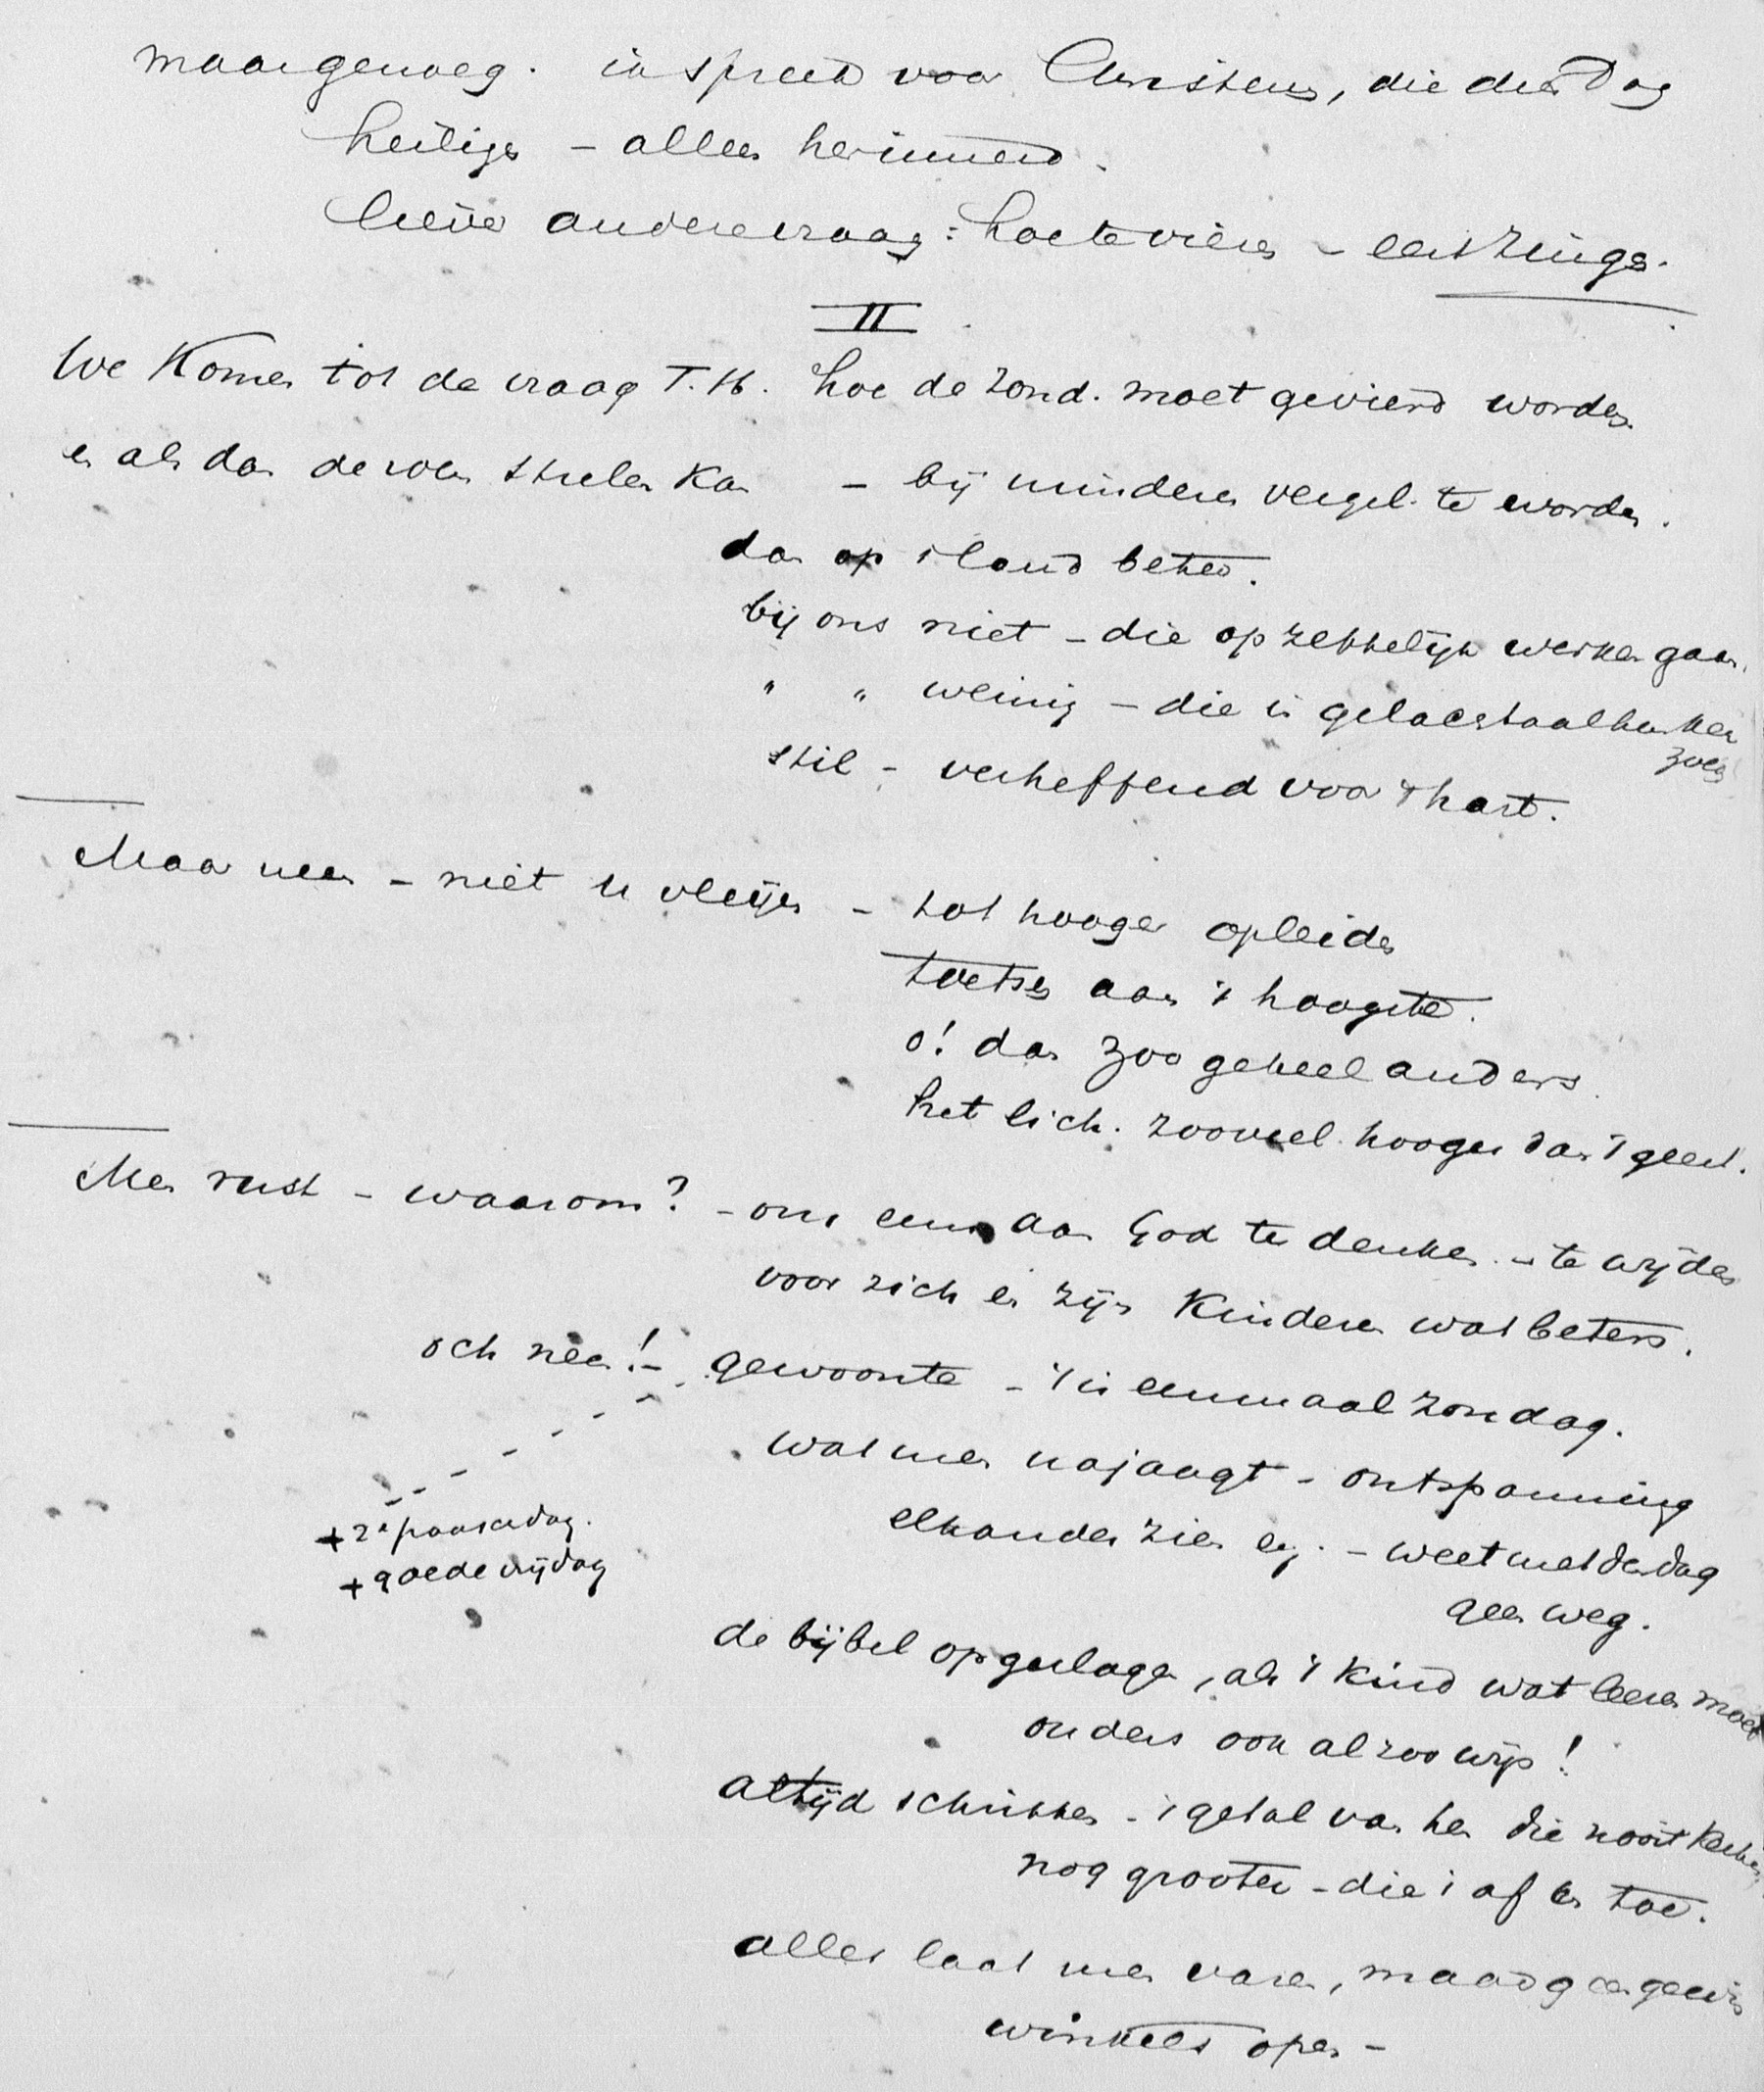 maar genoeg. ik spreek voor Christenen, die den Dag
heiligen - alleen herinnerd.
liever andere vraag: hoe te vieren - eerst zingen.
II
We komen tot de vraag T. H. hoe de Zond. moet gevierd worden
en als dan de wer stuler kan - bij minderen vergel. te worden.
dan op 't land beter.
bij ons niet - die opzettelijk werken gaan.
" " weinig - die in gelaestaal
stil - verheffend voor 't hart.
Maar neen - niet te vleijen - tot hooger opleiden
toetsen aan 't hoogste.
o! dan zoo geheel anders.
het lich. zooveel hooger dan 't geest.
Men rust - waarom? - om eens aan God te denken - te wijden
voor zich en zijn kinderen wat beters.
och neen! - gewoonte - 't is eenmaal zondag.
wat men najaagt - ontspanning
elkander zien enz. - weet met den dag
geen weg.
+ 2e paaschdag.
+ goede vrijdag
de bijbel opgeslagen, als 't kind wat leeren moet
ouders ook al zoo wijs!
altijd schrikken - 't getal van hen die nooit kerken
nog grooter - die 't af en toe.
alles laat men varen, maar geen gewin
winkels open -